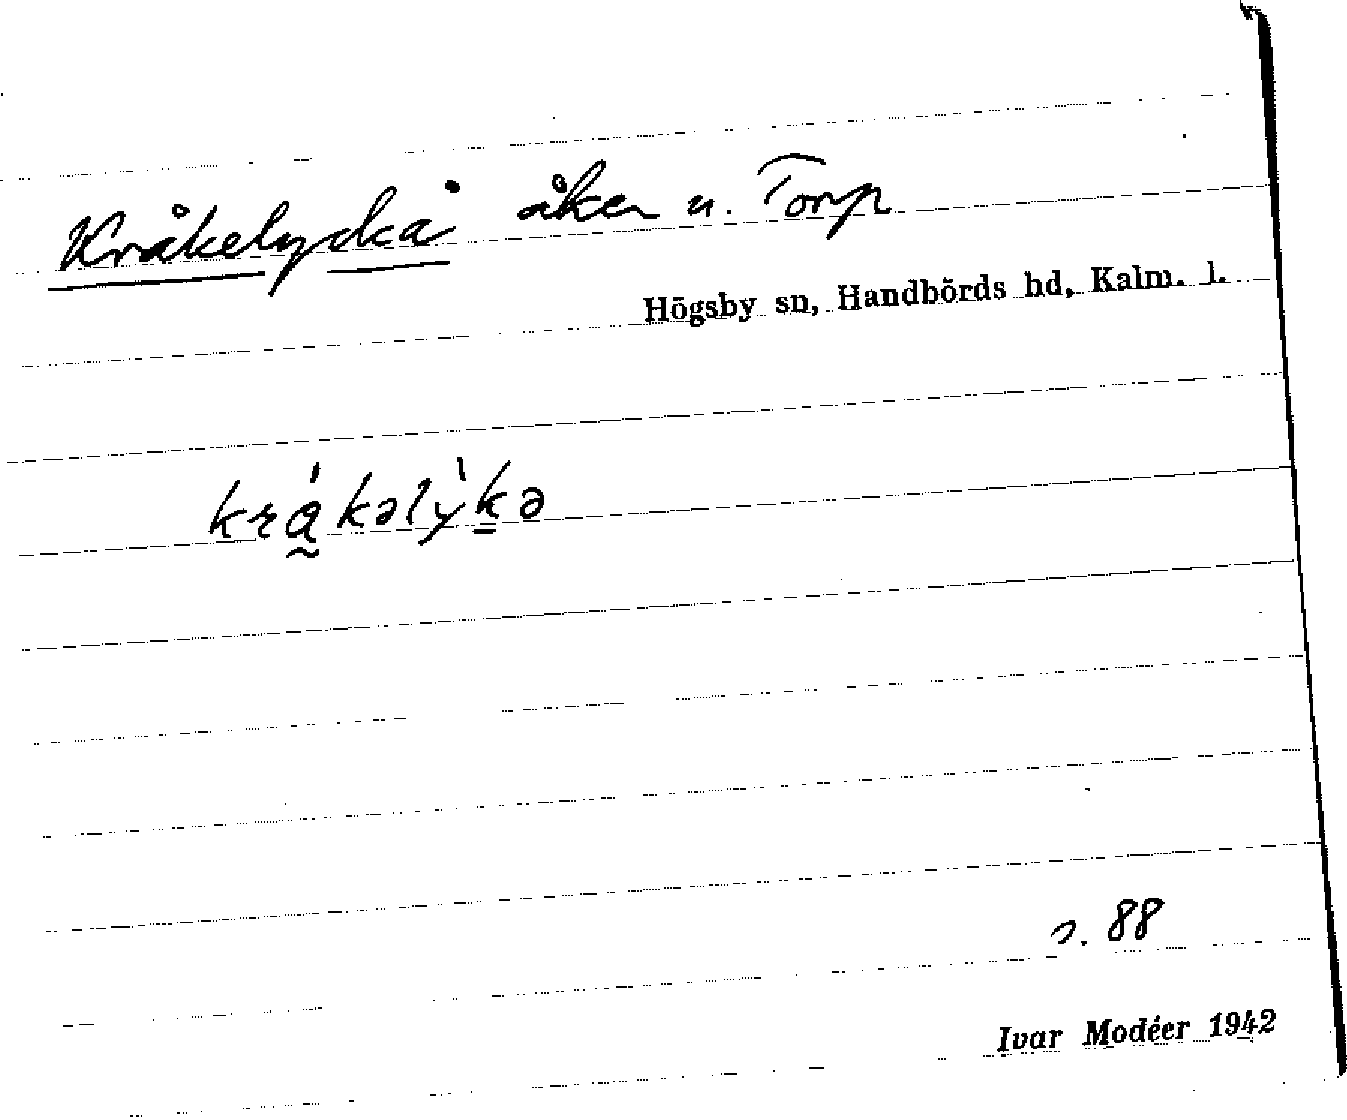 Kråkelycka åker u. Torp
Högsby sn, Handbörds hd, Kalm. l.
krá̰kəlỳk̲ə
s. 88
Ivar Modéer 1942